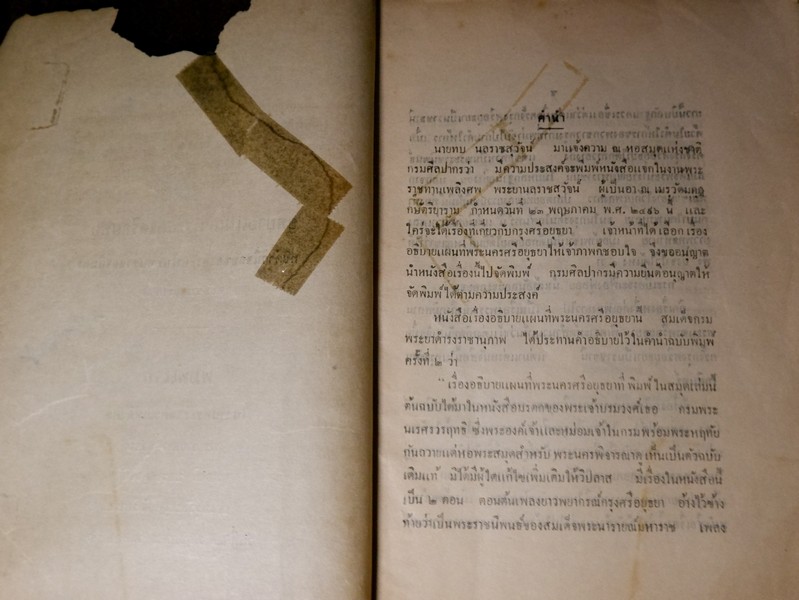 คำนำ
นายทบ นลราชสุวัจน์ มาแจ้งความ ณ หอสมุดแห่งชาติ
กรมศิลปากรว่า มีความประสงค์จะพิมพ์หนังสือแจกในงานพระ
ราชทานเพลิงศพ พระยานลราชสุวัจน์ ผู้เป็นอา ณ เมรุวัดมกุฏ
กษัตริยาราม กำหนดวันที่ ๒๓ พฤษภาคม พ.ศ. ๒๔๙๖ นี้ และ
ใคร่จะได้เรื่องที่เกี่ยวกับกรุงศรีอยุธยา เจ้าหน้าที่ได้เลือกเรื่อง
อธิบายแผนที่พระนครศรีอยุธยาให้เจ้าภาพก็ชอบใจ จึงขออนุญาต
นำหนังสือเรื่องนี้ไปจัดพิมพ์ กรมศิลปากรมีความยินดีอนุญาตให้
จัดพิมพ์ได้ตามความประสงค์
หนังสือเรื่องอธิบายแผนที่พระนครศรีอยุธยานี้ สมเด็จกรม
พระยาดำรงราชานุภาพ ได้ประทานคำอธิบายไว้ในคำนำฉบับพิมพ์
ครั้งที่ ๒ ว่า
“ เรื่องอธิบายแผนที่พระนครศรีอยุธยาที่พิมพ์ในสมุดเล่มนี้
ต้นฉบับได้มาในหนังสือมรดกของพระเจ้าบรมวงศ์เธอ กรมพระ
นเรศรวรฤทธิ์ ซึ่งพระองค์เจ้าและหม่อมเจ้าในกรมพร้อมพระหฤทัย
กันถวายแด่หอพระสมุดสำหรับพระนครพิจารณาดู เห็นเป็นตัวฉบับ
เดิมแท้ มิได้มีผู้ใดแก้ไขเพิ่มเติมให้วิปลาส มีเรื่องในหนังสือนี้
เป็น ๒ ตอน ตอนต้นเพลงยาวพยากรณ์กรุงศรีอยุธยา อ้างไว้ข้าง
ท้ายว่าเป็นพระราชนิพนธ์ของสมเด็จพระนารายณ์มหาราช เพลง